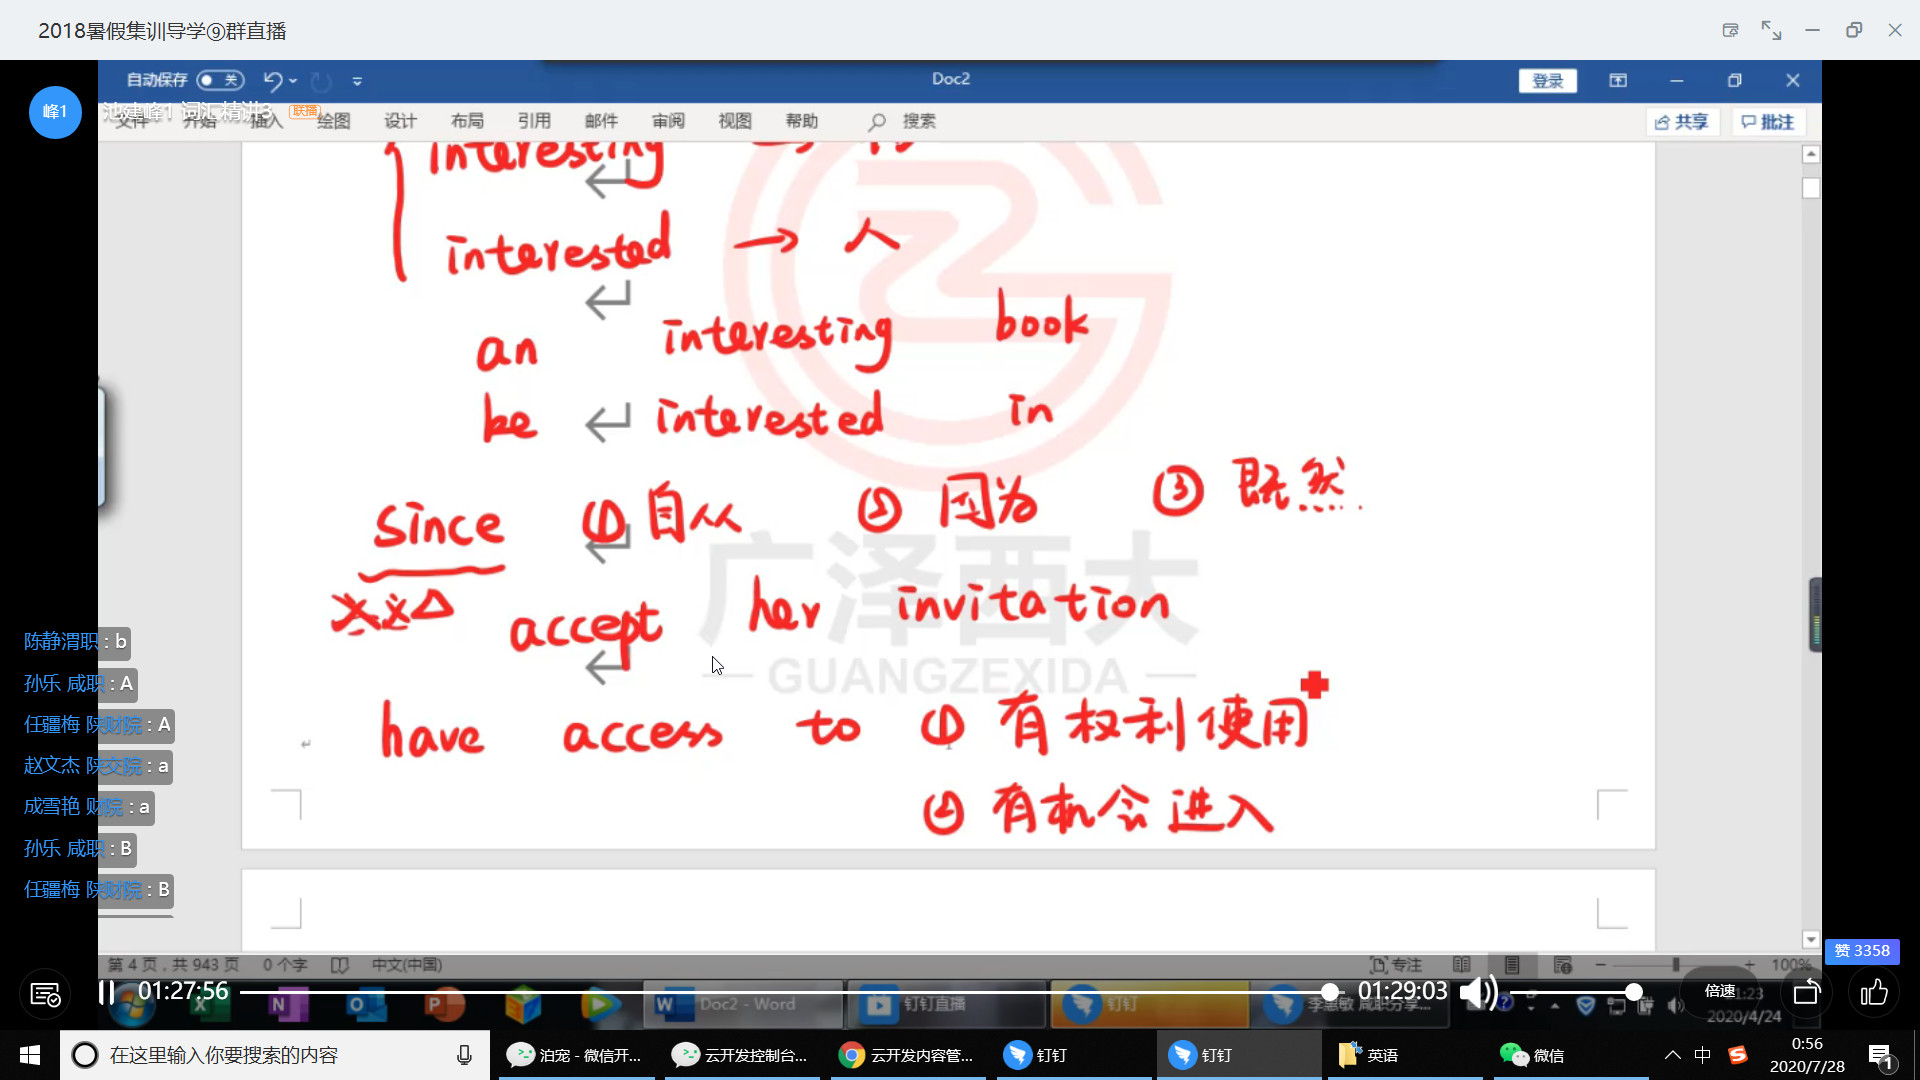 2018暑假集训导学⑨群直播
自动保存 关
Doc2
登录
峰1
池建峰1 词汇精讲3 联播
文件 开始 插入 绘图 设计 布局 引用 邮件 审阅 视图 帮助 搜索
共享 批注
interesting →
interested → 人
an interesting book
be interested in
since ① 自从 ② 因为 ③ 既然
accept her invitation
广泽西大
GUANGZEXIDA
have access to ① 有权利使用
② 有机会进入
陈静渭职 : b
孙乐 咸职 : A
任疆梅 陕财院 : A
赵文杰 陕交院 : a
成雪艳 财院 : a
孙乐 咸职 : B
任疆梅 陕财院 : B
赞 3358
第 4 页，共 943 页 0 个字 中文(中国)
专注 100%
01:27:56
01:29:03
倍速
Doc2 - Word
钉钉直播
钉钉
李惠敏 咸职分享...
1:23
2020/4/24
在这里输入你要搜索的内容
泊宠 - 微信开...
云开发控制台...
云开发内容管...
钉钉
钉钉
英语
微信
中
0:56
2020/7/28
1